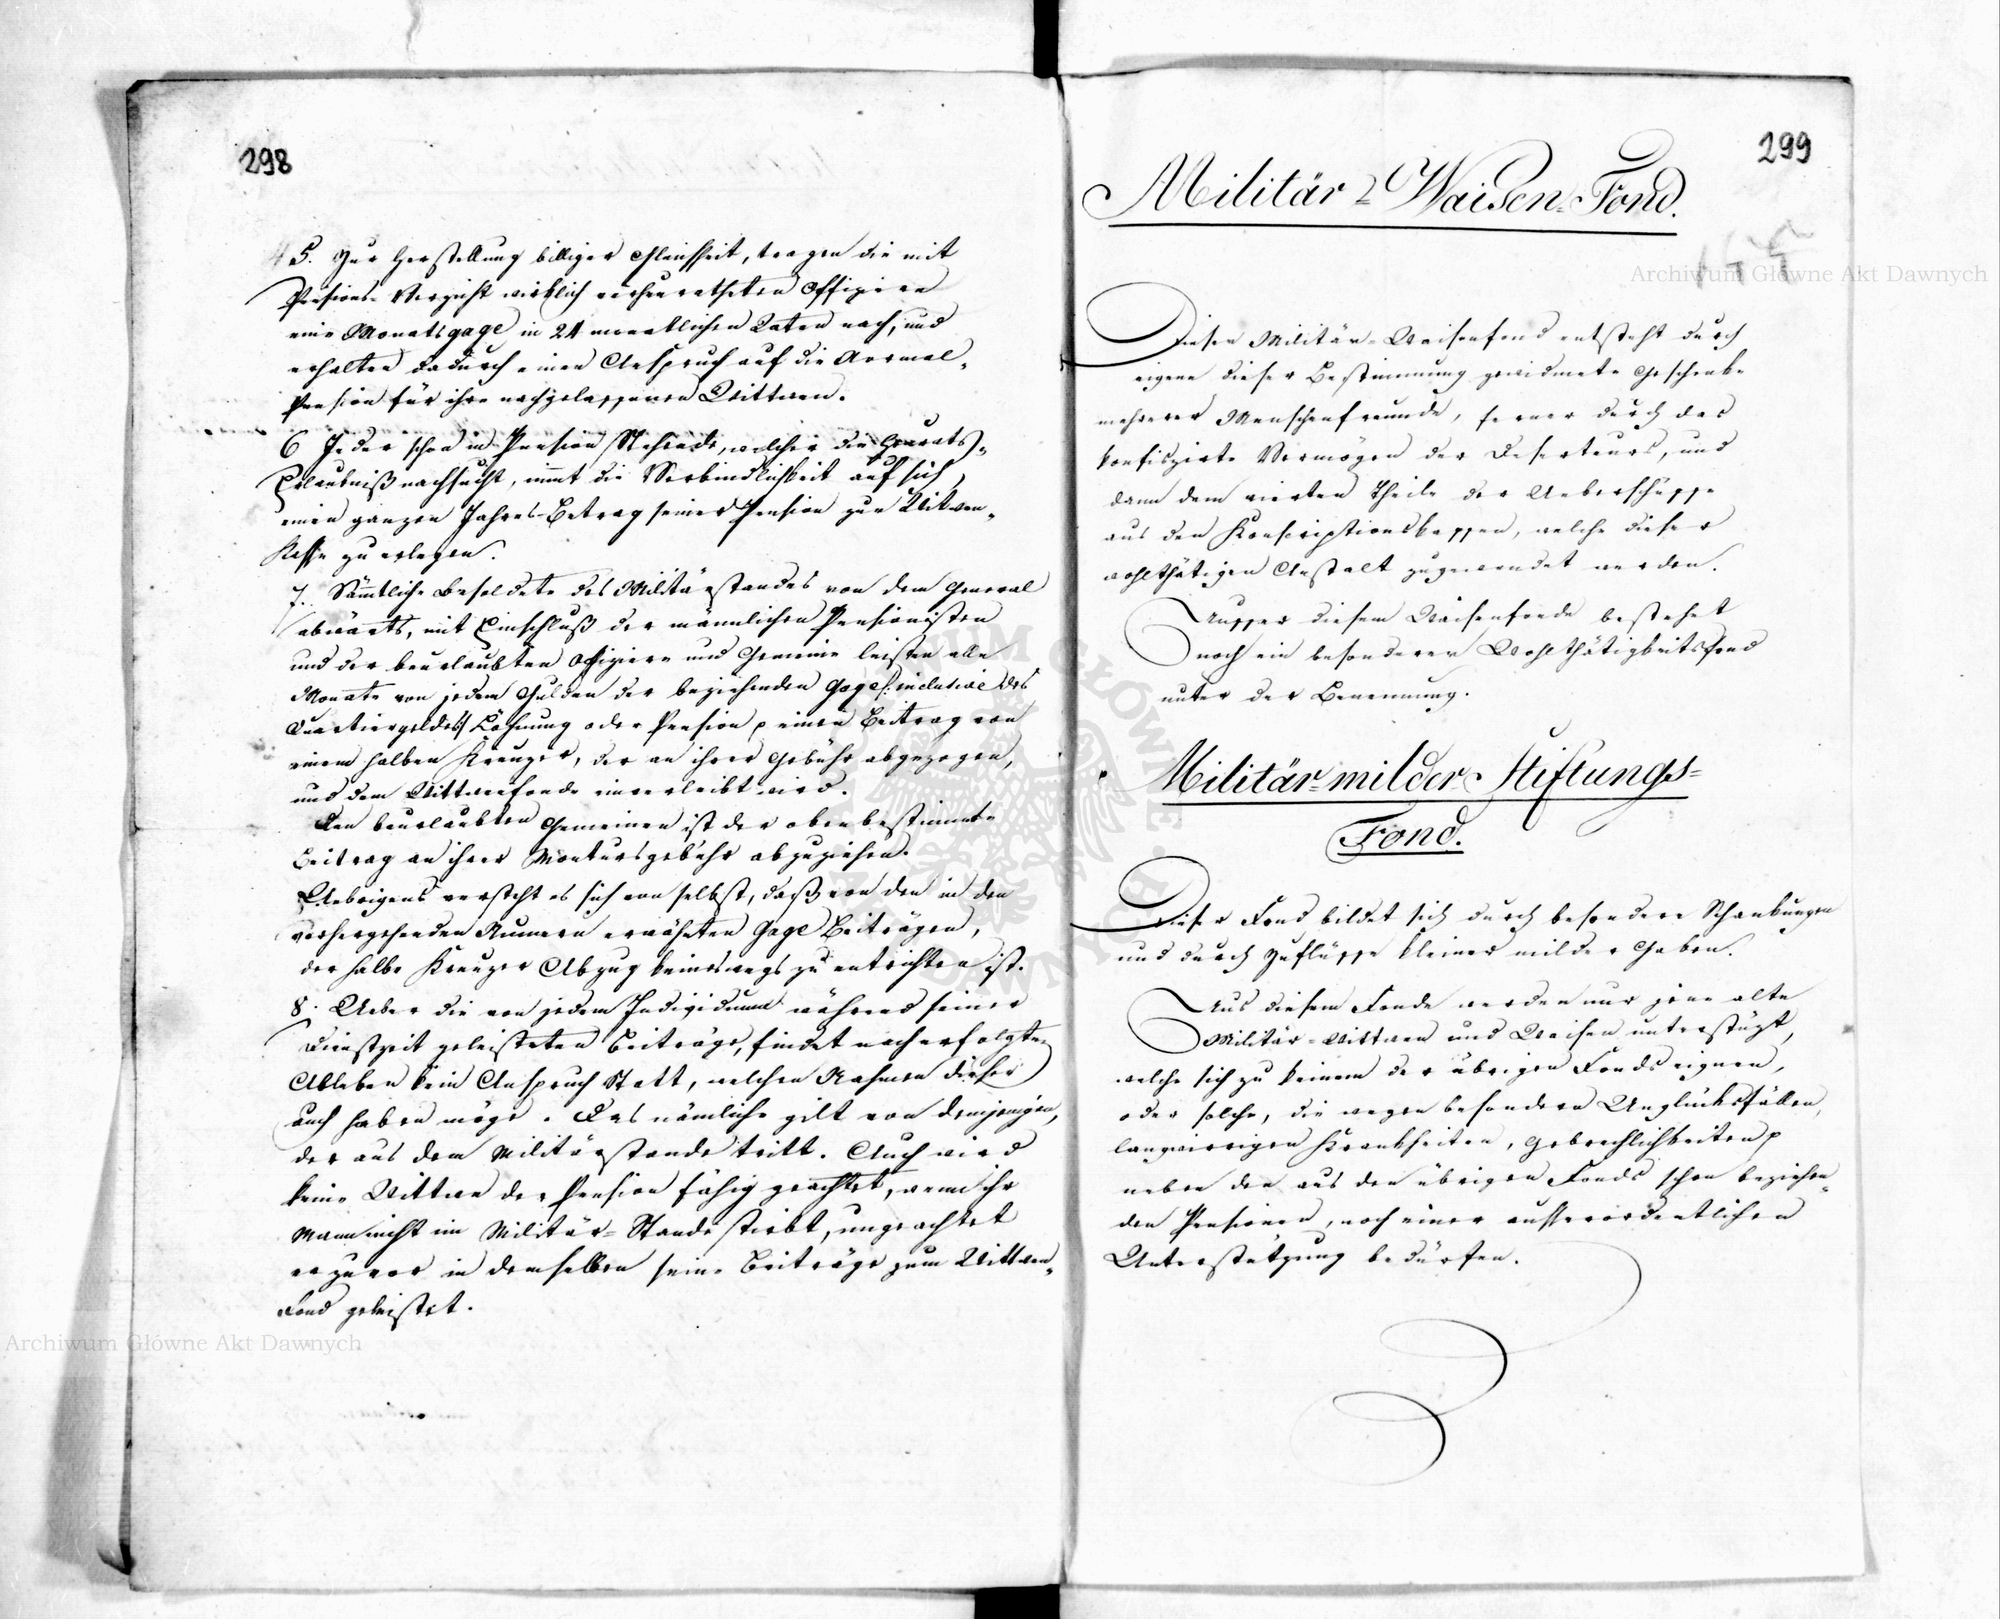 298
5. Zur Herstellung billiger Gleichheit, tragen die mit
Pensions-Verzicht wirklich verheuratheten Offiziere
eine Monatsgage in 24 monatlichen Raten nach, und
erhalten dadurch einen Anspruch auf die Normal-
Pension für ihre nachgelassenen Wittwen.
6 Jeder schon in Pension Stehende, welcher die Heurats-
Erlaubniß nachsucht, nimmt die Verbindlichkeit auf sich,
einen ganzen Jahres-Betrag seiner Pension zur Witwen-
Kasse zu erlegen.
7. Sämtliche Besoldete des Militärstandes von dem General
abwärts, mit Einschluß der männlichen Pensionisten
und der beurlaubten Offiziere und Gemeine leisten alle
Monate von jedem Gulden der beziehenden Gage /: inclusive des
Quartiergeldes :/ Löhnung oder Pension p einen Beitrag von
einem halben Kreuzer, der an ihrer Gebühr abgezogen,
und dem Wittwenfonde einverleibt wird.
Den beurlaubten Gemeinen ist der oben bestimmte
Beitrag an ihrer Montursgebühr abzuziehen.
Uebrigens versteht es sich von selbst, daß von den in den
vorhergehenden Numern erwähnten Gage Beiträgen,
der halbe Kreuzer Abzug keineswegs zu entrichten ist.
8. Ueber die von jedem Individuum während seiner
Dienstzeit geleisteten Beiträge, findet nach erfolgten
Ableben kein Anspruch Statt, welchen Nahmen dieser
auch haben möge. Das nämliche gilt von demjenigen,
der aus dem Militärstande tritt. Auch wird
keine Wittwe der Pension fähig geachtet, wenn ihr
Mann nicht im Militär-Stande stirbt, ungeachtet
er zuvor in demselben seine Beiträge zum Wittwen-
Fond geleistet.
299
Militär-Waisen-Fond.
Dieser Militär-Waisenfond entsteht durch
eigene dieser Bestimmung gewidmete Geschenke
mehrerer Menschenfreunde, ferner durch das
konfiszirte Vermögen der Deserteurs, und
dann dem vierten Theile der Ueberschüsse
aus den Konscriptionskassen, welche dieser
wohlthätigen Anstalt zugewendet werden.
Ausser diesem Waisenfonde bestehet
noch ein besonderer Wohlthätigkeitsfond
unter der Benennung.
Militär-milder-Stiftungs-
Fond.
Dieser Fond bildet sich durch besondere Schankungen
und durch Zuflüsse kleiner milder Gaben.
Aus diesem Fonde werden nur jene alte
Militär-Wittwen und Waisen unterstüzt,
welche sich zu keinem der übrigen Fonds eignen,
oder solche, die wegen besondern Unglücksfällen,
langwierigen Krankheiten, Gebrechlichkeiten p
neben den aus den übrigen Fonds schon beziehen-
den Pensionen, noch einer ausserordentlichen
Unterstützung bedürfen.
Archiwum Główne Akt Dawnych
Archiwum Główne Akt Dawnych